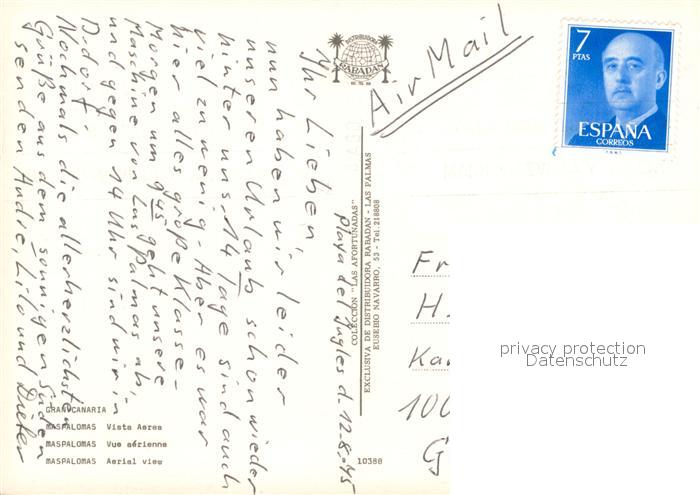 Air Mail
7
PTAS
ESPAÑA
CORREOS
DISTRIBUIDORA
RABADAN
COLECCION "LAS AFORTUNADAS"
EXCLUSIVA DE DISTRIBUIDORA RABADAN - LAS PALMAS
EUSEBIO NAVARRO, 53 - Tel. 218808
Playa del Ingles d. 12-8-75
Ihr Lieben
nun haben wir leider
unseren Urlaub schon wieder
hinter uns. 14 Tage sind auch
viel zu wenig - Aber es war
hier alles große Klasse -
Morgen um 9 45 geht unsere
Maschine von Las Palmas ab,
und gegen 14 Uhr sind wir in
D,dorf.
Nochmals die allerherzlichsten
Grüße aus dem sonnigen Süden
senden Andre, Lilo und Dieter
Fr
H.
Ka
100
G
privacy protection
Datenschutz
GRAN CANARIA
MASPALOMAS Vista Aerea
MASPALOMAS Vue aérienne
MASPALOMAS Aerial view
10388